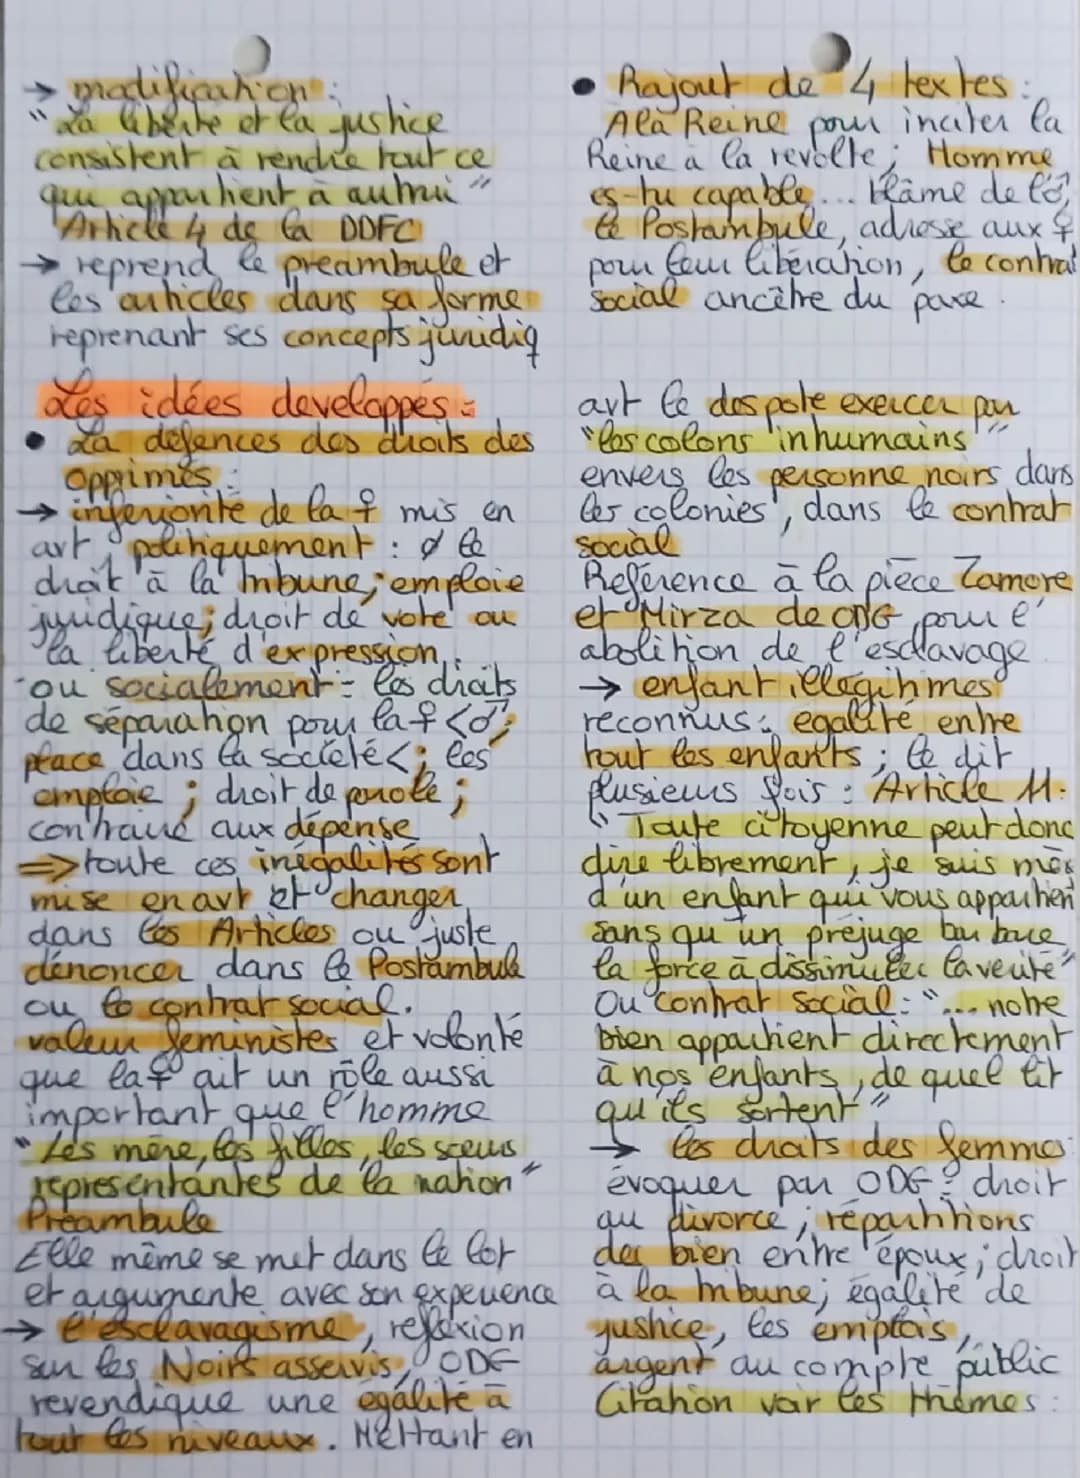 → modification :
"La liberté et la justice
consistent à rendre tout ce
qui appartient à autrui"
Article 4 de la DDFC
→ reprend le préambule et
les articles dans sa forme
reprenant ses concepts juridiq
Les idées developpés :
• La défences des droits des
opprimés :
→ inferiorité de la ♀ mis en
avt, politiquement : ∅ le
droit à la tribune ; emploie
juridique ; droit de vote ou
la liberté d'expression,
ou socialement : les droits
de séparation pour la ♀ < ♂ ;
place dans la société < ; les
emploie ; droit de parole ;
contraire aux dépense
⇒ toute ces inégalités sont
mise en avt et changer
dans les Articles ou juste
dénoncer dans le Postambule
ou le contrat social.
valeur féministes et volonté
que la ♀ ait un rôle aussi
important que l'homme
"Les mère, les filles, les sœurs
représentantes de la nation"
Préambule
Elle même se met dans le lot
et argumente avec son expérience
→ l'esclavagisme, reflexion
sur les Noirs asservis, ODG
revendique une égalité à
tout les niveaux. Mettant en
• Rajout de 4 textes :
A la Reine pour inciter la
Reine à la revolte ; Homme
es-tu capable... blâme de l'♂,
le Postambule, adresse aux ♀
pour leur libération, le contrat
social ancêtre du pacse.
avt le despote exercer par
"les colons inhumains"
envers les personne noirs dans
les colonies, dans le contrat
social
Reference à la pièce Zamore
et Mirza de ODG pour l'
abolition de l'esclavage.
→ enfant illégitimes
reconnus : égalité entre
tout les enfants ; le dit
plusieurs fois : Article 11 :
"Toute citoyenne peut donc
dire librement, je suis mère
d'un enfant qui vous appartient
sans qu'un préjugé barbare
la force à dissimuler la vérité"
Ou contrat social : "... notre
bien appartient directement
à nos enfants, de quel lit
qu'ils sortent"
→ les droits des femmes
évoquer par ODG : droit
au divorce ; répartitions
des bien entre époux ; droit
à la tribune ; égalité de
justice, les emplois,
argent au compte public
Citation voir les thèmes :